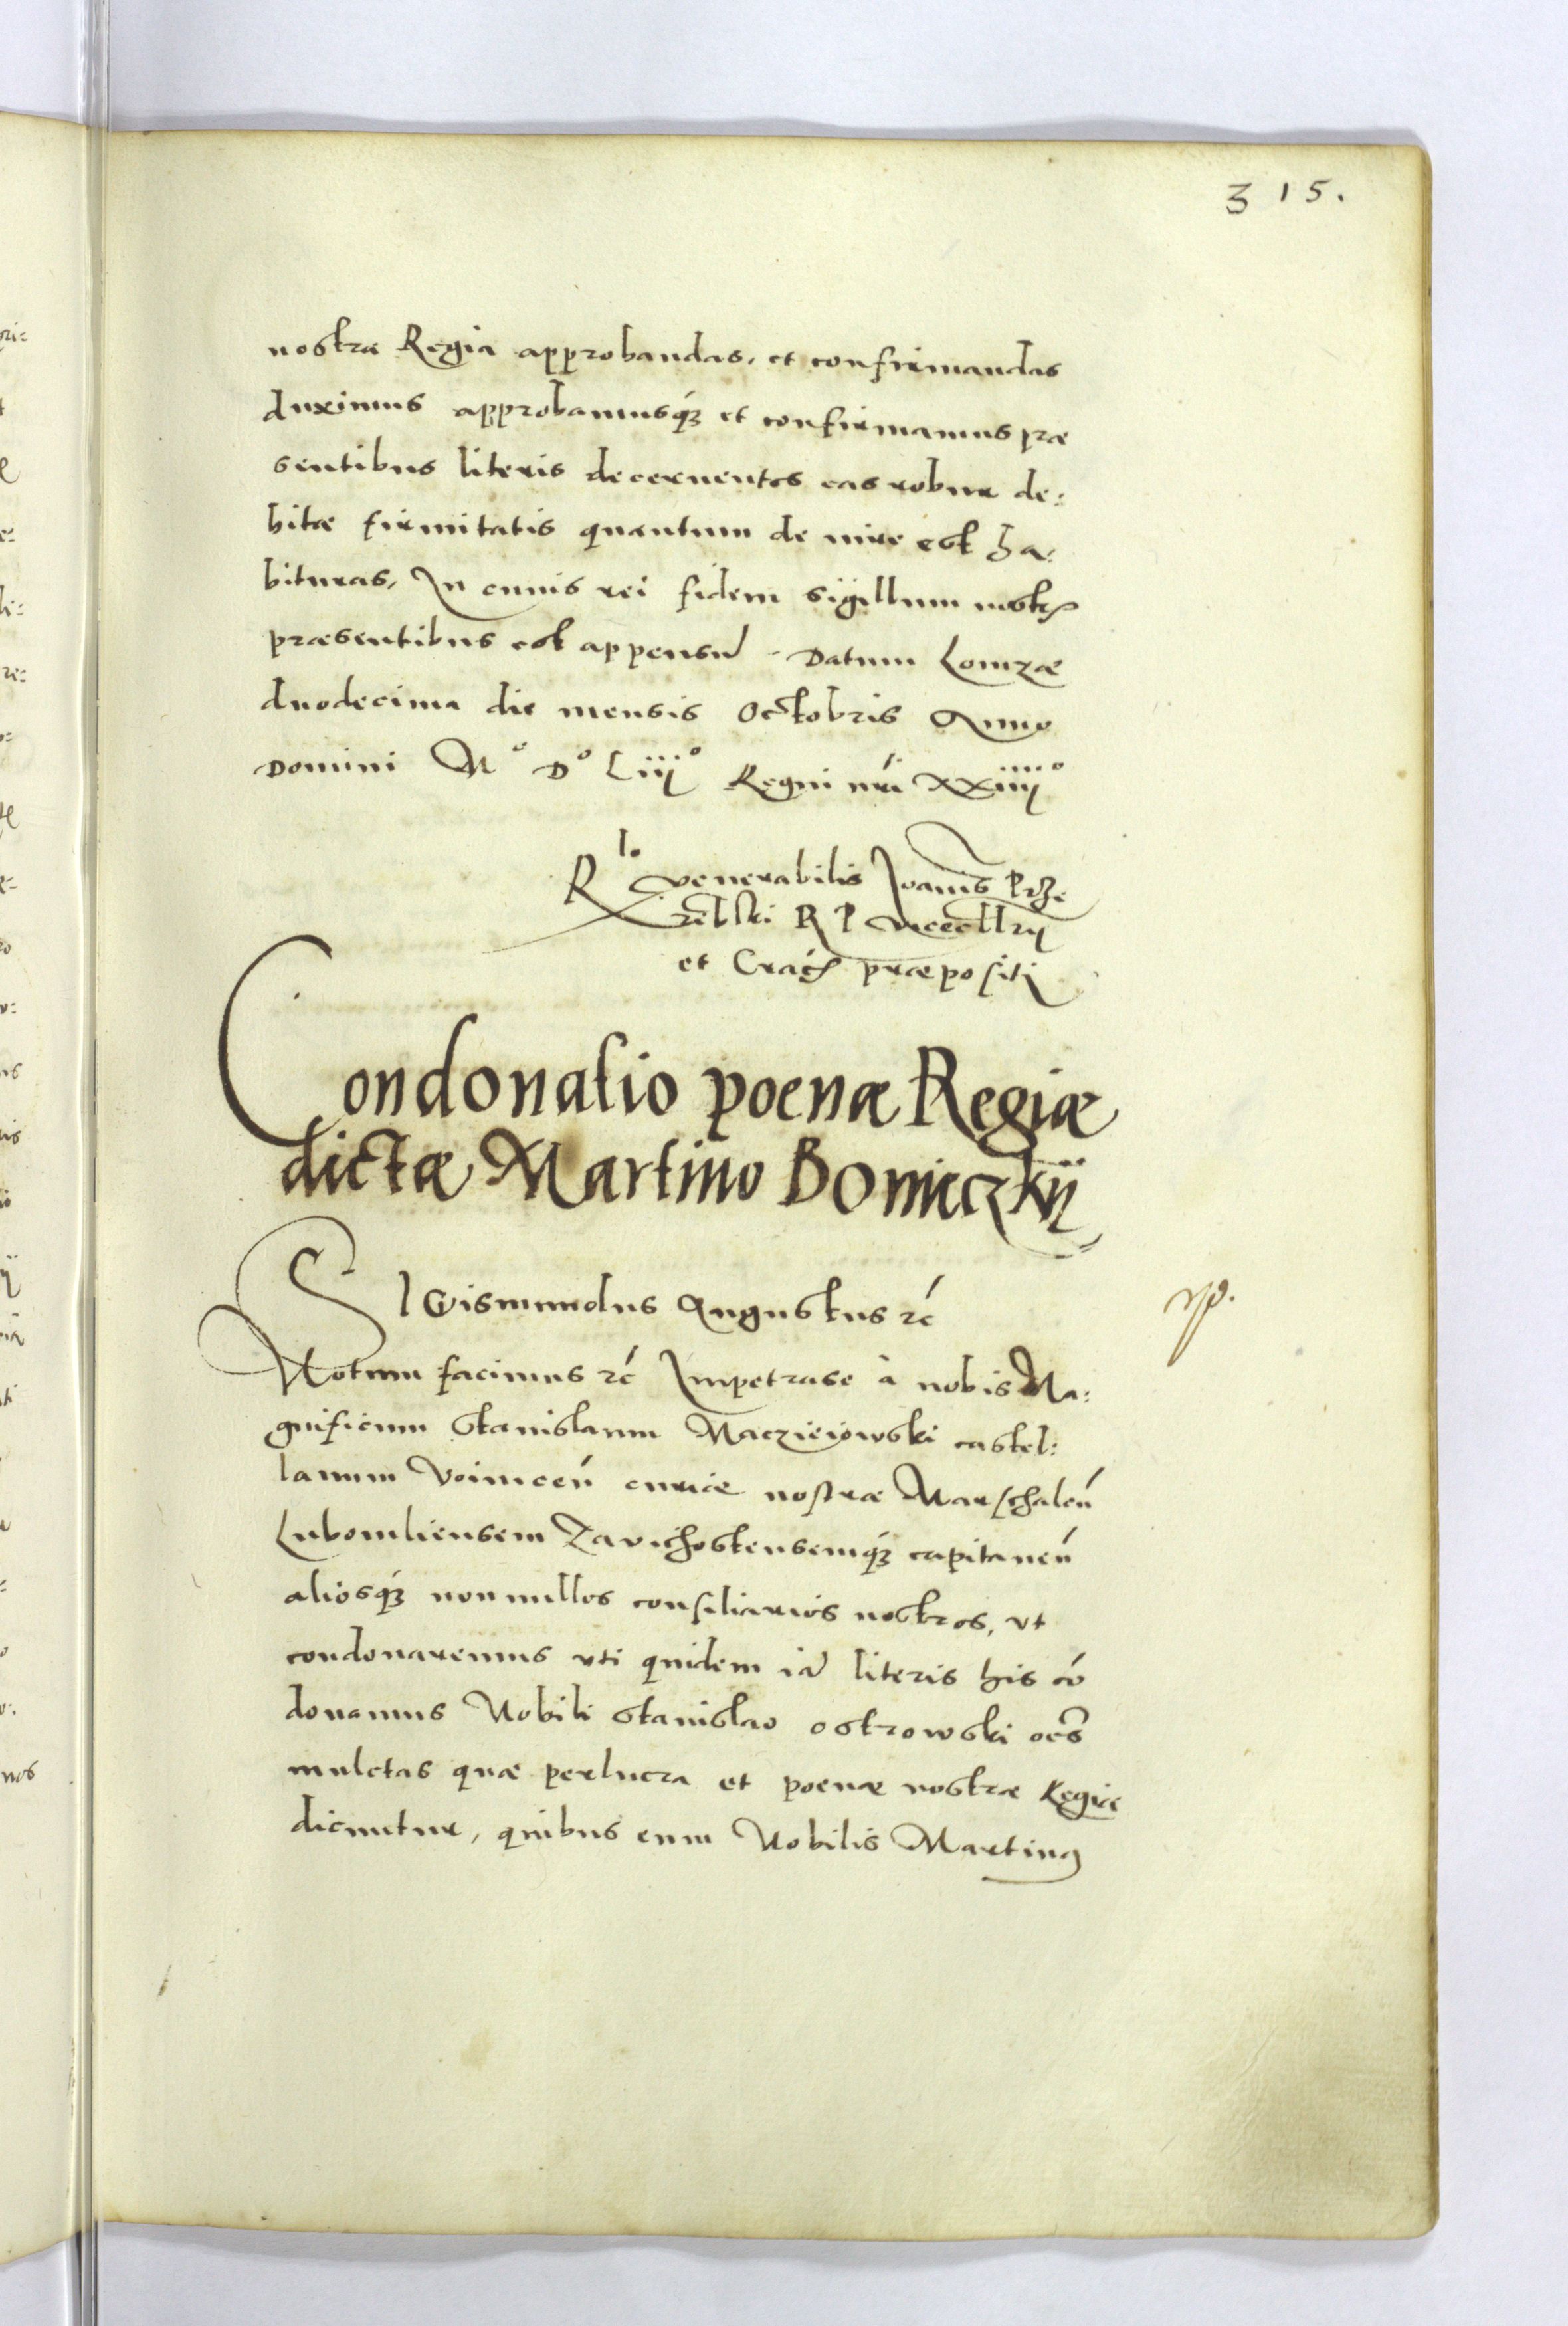 315.
nostra Regia approbandas, et confirmandas
duximus approbamusq́ꝫ et confirmamus præ
sentibus literis decernentes eas robur de:
bitæ firmitatis quantum de iure est ha:
bituras, In cuius rei fidem sigillum nostꝝ
præsentibus est appensũ. Datum Lomzæ
duodecima die mensis Octobris Anno
Domini M° D° Liiij° Regni nrī XXiiij°
Rlo venerabilis Joannis Prze
rębski R P vicecllrij
et Crac̃ præpositi
Condonatio poenæ Regiæ
dictæ Martino Boniczkij
SIGismundus Augustus rc̃
Notum facimus rc̃ Impetrase à nobis Ma:
gnificum Stanislaum Macziéiowski castel:
lanum Voinicen̄ curiæ nostræ Marschalcū
Lubomliensem Zavichostensemq́ꝫ capitaneū
aliosq́ꝫ nonnullos consiliarios nostros, vt
condonaremus vti quidem iã literis his cō
donamus Nobili Stanislao Ostrowski oẽs
mulctas quæ perlucra et poenæ nostræ Regiæ
dicuntur, quibus eum Nobilis Martinꝰ